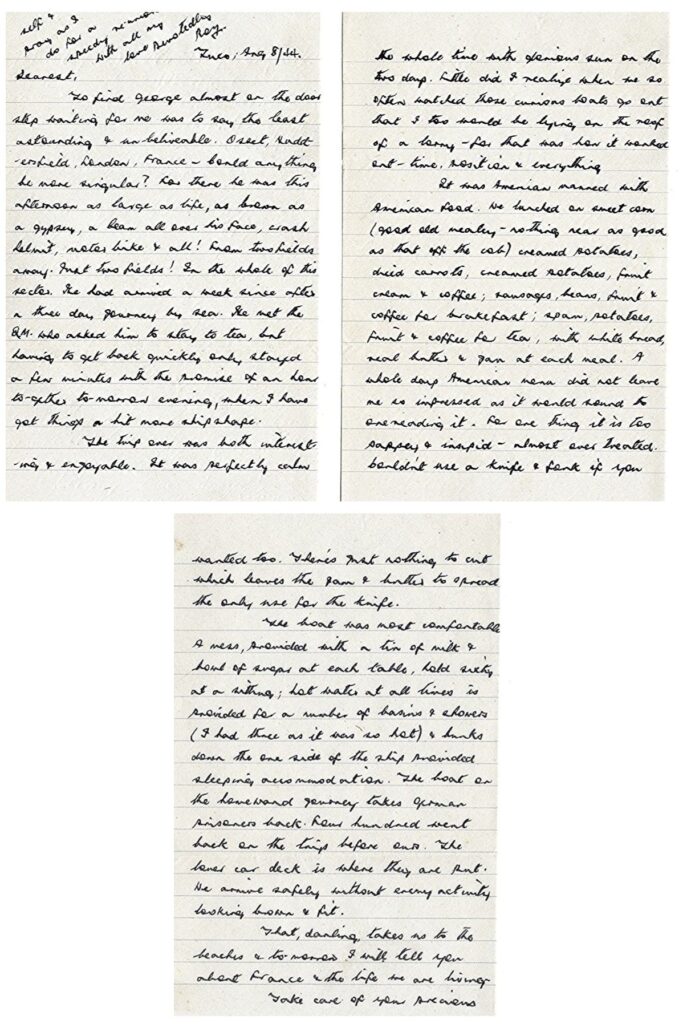 self &
pray as I
do for a reunion
speedy
with all my
love Devotedly,
Roy.
Tues; Aug 8/44.
Dearest,
To find George almost on the door
step waiting for me was to say the least
astounding & unbeliveable. Ossett, Hudd-
-ersfield, London, France - Could anything
be more singular? For there he was this
afternoon as large as life, as brown as
a gypsey, a beam all over his face, crash
helmet, motor bike & all! From two fields
away. Just two fields! In the whole of this
sector. He had arrived a week since after
a three day journey by sea. He met the
Q.M. who asked him to stay to tea, but
having to get back quickly only stayed
a few minutes with the promise of an hour
to-gether to-morrow evening, when I have
got things a bit more shipshape.
The trip over was both interest-
-ing & enjoyable. It was perfectly calm
the whole time with glorious sun on the
two days. Little did I realize when we so
often watched those curious boats go out
that I too would be lying on the roof
of a lorry - for that was how it worked
out - time, position & everything
It was American manned with
American food. We lunched on sweet corn
(good old mealies - nothing near as good
as that off the cob) creamed potatoes,
dried carrots, creamed potatoes, fruit
cream & coffee; sausages, beans, fruit &
coffee for breakfast; spam, potatoes,
fruit & coffee for tea, with white bread,
real butter & jam at each meal. A
whole days American menu did not leave
me so impressed as it would sound to
one reading it. For one thing it is too
sappey & insipid - almost over treated.
Couldn't use a knife & fork if you
wanted too. There's just nothing to cut
which leaves the jam & butter to spread
the only use for the knife.
The boat was most comfortable
A mess, provided with a tin of milk &
bowl of sugar at each table, held sixty
at a sitting; hot water at all times is
provided for a number of basins & showers
(I had three as it was so hot) & bunks
down the one side of the ship provided
sleeping accommodation. The boat on
the homeward journey takes German
prisoners back. Four hundred went
back on the trips before ours. The
lower car deck is where they are put.
We arrive safely without enemy activity
looking brown & fit.
That, darling, takes us to the
beaches & to-morrow I will tell you
about France & the life we are living.
Take care of your precious